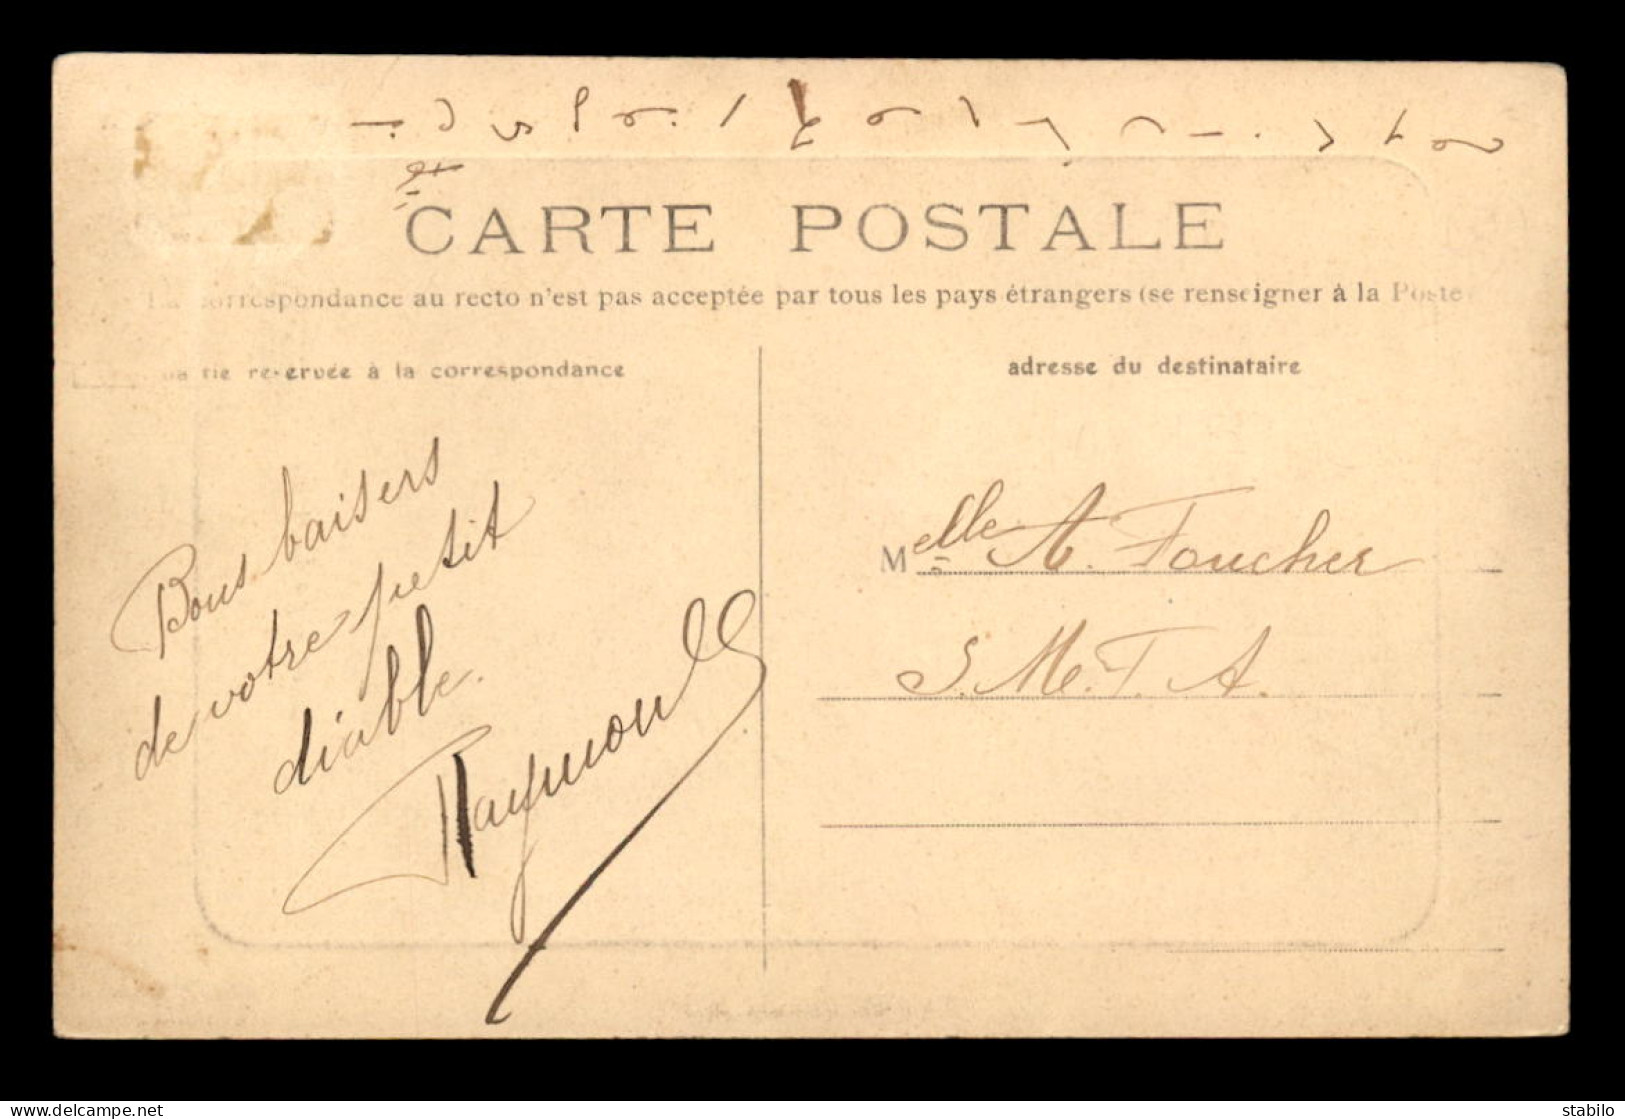 CARTE POSTALE
La correspondance au recto n'est pas acceptée par tous les pays étrangers (se renseigner à la Poste)
partie réservée à la correspondance
adresse du destinataire
Bons baisers
de votre petit
diable.
Raymond
Melle A. Foucher
S. M. T. A.
https://www.delcampe.net
stabilo